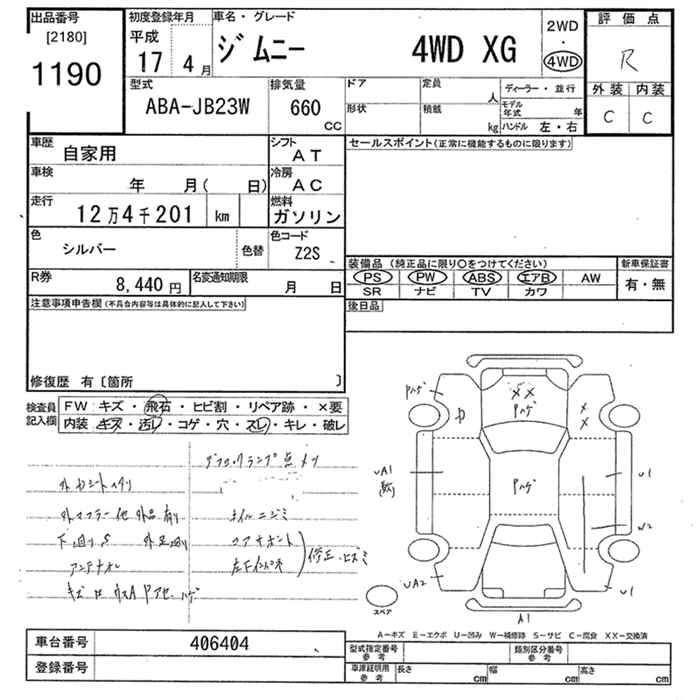 出品番号
[2180]
1190
初度登録年月
平成
17年 4月
車名・グレード
ジムニー 4WD XG
2WD
・
4WD
評価点
R
外装 内装
C C
型式
ABA-JB23W
排気量
660
CC
ドア
定員
人
形状
積載
kg
ディーラー・並行
モデル年式 年
ハンドル 左・右
車歴
自家用
シフト
AT
セールスポイント(正常に機能するものに限ります)
車検
年 月( 日)
冷房
AC
走行
12万4千201 km
燃料
ガソリン
色
シルバー
色替
色コード
Z2S
装備品 (純正品に限り○をつけてください)
新車保証書
PS PW ABS エアB AW
SR ナビ TV カワ
有・無
R券
8,440円
名変通知期限
月 日
注意事項申告欄(不具合内容等は具体的に記入して下さい)
後日品
修復歴 有〔箇所 〕
検査員記入欄
FW キズ・飛石・ヒビ割・リペア跡・×要
内装 キズ・汚レ・コゲ・穴・スレ・キレ・破レ
外マフラー他外品有り
下回りS
アンテナオレ
オイルニジミ
修正・ヒズミ
Pハゲ
××
Pハゲ
Pハゲ
UA1
UA2
U1
U2
U1
A1
スペア
A-キズ E-エクボ U-凹み W-補修跡 S-サビ C-腐食 XX-交換済
車台番号
406404
登録番号
型式指定番号
参考
類別区分番号
参考
車庫証明用
参考
長さ cm
幅 cm
高さ cm